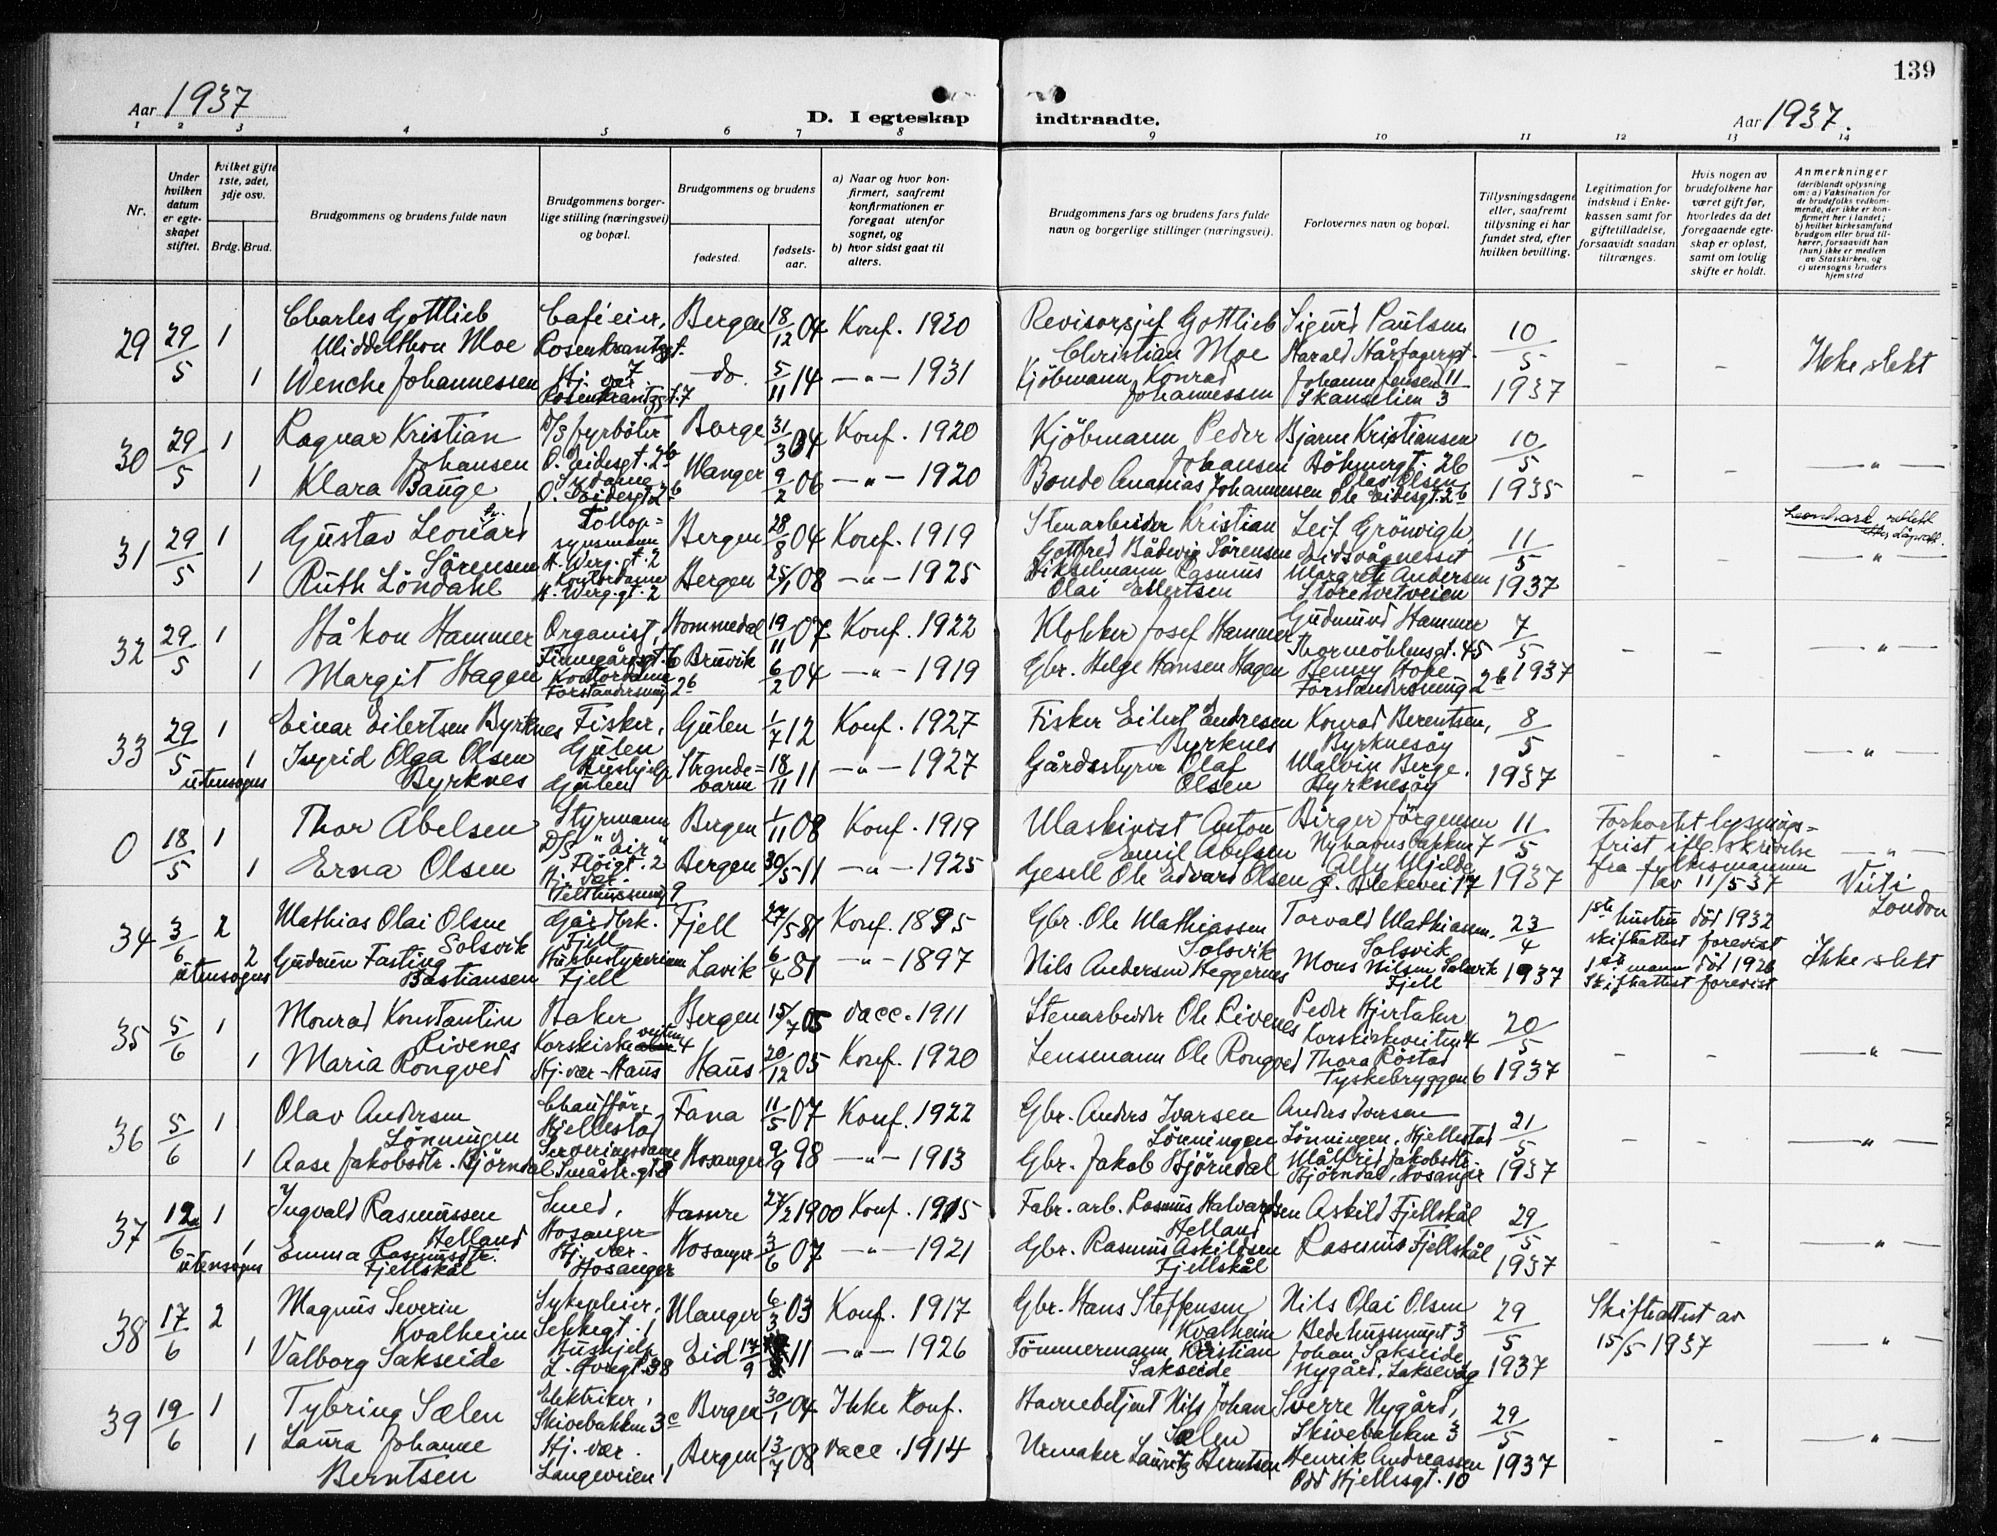 139
Aar 1937
D. I egteskap indtraadte.
Aar 1937.
1 2 3 4 5 6 7 8 9 10 11 12 13 14
Nr.
Under hvilken datum er egteskapet stiftet.
hvilket gifte 1ste, 2det, 3dje osv.
Brdg. Brud.
Brudgommens og brudens fulde navn
Brudgommens borgerlige stilling (næringsvei) og bopæl.
Brudgommens og brudens
fødested.
fødselsaar.
a) Naar og hvor konfirmert, saafremt konfirmationen er foregaat utenfor sognet, og
b) hvor sidst gaat til alters.
Brudgommens fars og brudens fars fulde navn og borgerlige stillinger (næringsvei).
Forlovernes navn og bopæl.
Tillysningsdagene eller, saafremt tillysning ei har fundet sted, efter hvilken bevilling.
Legitimation for indskud i Enkekassen samt for giftetilladelse, forsaavidt saadan tiltrænges.
Hvis nogen av brudefolkene har været gift før, hvorledes da det foregaaende egteskap er opløst, samt om lovlig skifte er holdt.
Anmerkninger
(deriblandt oplysning om: a) Vaksination for de brudefolks vedkommende, der ikke er konfirmert her i landet; b) hvilket kirkesamfund brudgom eller brud tilhører, forsaavidt han (hun) ikke er medlem av Statskirken, og c) utensogns bruders hjemsted
29 29/5 1 Charles Gottlieb Middelthon Moe Caféeier, Rosenkrantzgt. 7 Bergen 18/12 04 Konf. 1920 Revisorsjef Gottlieb Christian Moe Sigurd Paulsen Harald Hårfagersgt. 11 10/5 1937 - - Ikke slekt
1 Wenche Johannessen Hj. vær. Rosenkrantzgt. 7 - do. 5/11 14 -"- 1931 Kjöbmann Konrad Johannessen Johanne Jensen Skanselien 3
30 29/5 1 Ragnar Kristian Johansen D/S fyrböter O. Eidesgt. 26 Borge 31/3 04 Konf. 1920 Kjöbmann Peder Johansen Bjarne Kristiansen Böhmergt. 26 10/5 1935 - - -"-
1 Klara Bauge Sydame O. Eidesgt. 26 Manger 9/2 06 -"- 1920 Bonde Ananias Johannessen Olav Olsen Ole Eidesgt. 26
31 29/5 1 Gustav Leonard Sörensen Tollopsynsmann H. Werg.gt. 2 Bergen 28/8 04 Konf. 1919 Stenarbeider Kristian Gottfred Bådwig Sörensen Leif Grönvigh, Eidsvågnesset 11/5 1937 Leonhard rettet
1 Ruth Löndahl Kontordame H. Werg.gt. 2 Bergen 25/1 08 -"- 1925 Rasmus Olai Ellertsen Margreth Andersen Storetvetveien -"-
32 29/5 1 Håkon Hammer Organist, Finnegårdsgt. 6 Hommedal 19/11 07 Konf. 1922 Klokker Josef Hammer Gudmund Hammer Thormöhlensgt. 45 7/5 1937 - - -"-
1 Margit Hagen Kontordame Forstandersmug 2b Bruvik 6/2 04 -"- 1919 Gbr. Helge Hansen Hagen Benny Hope Forstandersmug 2b
33 29/5 utensogns 1 Einar Eilertsen Byrknes Fisker, Gulen Gulen 1/7 12 Konf. 1927 Fisker Eilert Endresen Byrknes Konrad Berentsen, Byrknesöy 8/5 1937 - - -"-
1 Ingrid Olga Olsen Byrknes Hushjelp Gulen Strandebarm 18/11 11 -"- 1927 Gårdsstyrer Olaf Olsen Malvin Berge. Byrknesöy
0 18/5 1 Thor Abelsen Styrmann D/S "Eir" Flöigt. 2 Bergen 1/11 08 Konf. 1919 Maskinist Anton Emil Abelsen Birger Jörgensen Nyhavnsbakken 7 11/5 1937 Forkortet lysningsfrist ifl. skrivelse fra fylkesmannen av 11/5 37 -"-
1 Erna Olsen Hj. vær. Helthussmug 9 Bergen 30/5 11 -"- 1925 Gesell Ole Edvard Olsen Alfy Mjelde Ö. Blekevei 17 Viet i London
34 3/6 utensogns 2 Mathias Olai Olsen Solsvik Gårdbrk. Fjell Fjell 27/5 81 Konf. 1895 Gbr. Ole Mathiassen Solsvik Torvald Mathiassen, Solsvik 23/4 1937 1ste hustru död 1932 skiftattest forevist
2 Gudrun Fasting Bastiansen Husbestyrerinne Fjell Lavik 6/4 81 -"- 1897 Nils Andersen Heggernes Mons Nilsen Solsvik Fjell 1ste mann död 1926 Skiftattest forevist Ikke slekt
35 5/6 1 Monrad Konstantin Rivenes Baker Korskirkeveiten 4 Bergen 15/7 05 Vacc. 1911 Stenarbeider Ole Rivenes Peder Hjertaker Korskirkeveiten 4 20/5 1937 - - -"-
1 Maria Rongved Hj. vær - Haus Haus 20/12 05 Konf. 1920 Lensmann Ole Rongved Thora Röstad Tyskebryggen 6
36 5/6 1 Olav Andersen Lönningen Chauffför, Hjellestad Fana 11/5 07 Konf. 1922 Gbr. Anders Ivarsen Lönningen Anders Iversen Lönningen, Hjellestad 21/5 1937 - - -"-
1 Aase Jakobsdtr. Hjörndal Serveringsdame Småstr.gt 8 Hosanger 9/9 98 -"- 1913 Gbr. Jakob Hjörndal Målfrid Jakobsdtr. Hjörndal, Hosanger
37 12/6 utensogns 1 Ingvald Rasmussen Helland Smed, Hosanger Hamre 27/2 1900 Konf. 1915 Fabr. arb. Rasmus Halvardsen Helland Askild Fjellskål 29/5 1937 -"-
1 Emma Rasmusdtr. Fjellskål Hj. vær. Hosanger Hosanger 3/6 07 -"- 1921 Gbr. Rasmus Askildsen Fjellskål Rasmus Fjellskål
38 17/6 2 Magnus Severin Kvalheim Sykepleier, Sekkegt. 1 Manger 6/3 03 Konf. 1917 Gbr. Hans Steffensen Kvalheim Nils Olai Olsen Bedehussmuget 3 29/5 1937 Skiftattest av 15/5 1937 -"-
1 Valborg Sakseide Hushjelp L. Övregt. 38 Eid 17/9 11 -"- 1926 Tömmermann Kristian Sakseide Johan Sakseide Nygård, Laksevåg
39 19/6 1 Tybring Sælen Elektriker, Skivebakken 3c Bergen 30/1 04 Ikke Konf. Havnebetjent Nils Johan Sælen Sverre Nygård, Skivebakken 3 29/5 1937 - - -"-
1 Laura Johanne Berntsen Hj. vær. Langeveien 1, Bergen 13/7 08 Vacc. 1914 Urmaker Lauritz Berntsen Henrik Andreassen Odd Hjellesgt. 10